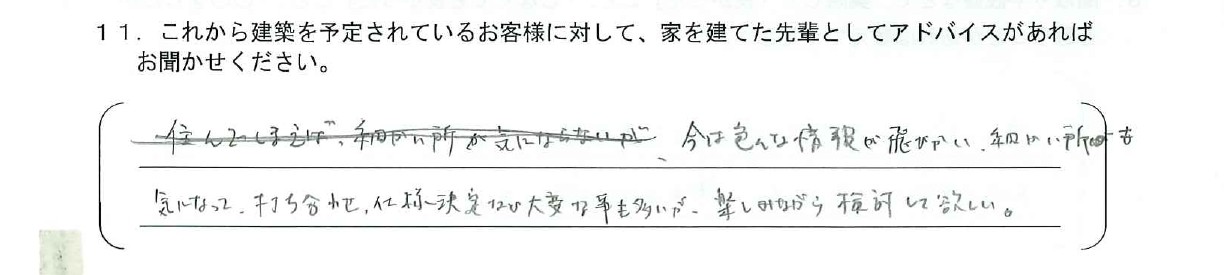 11．これから建築を予定されているお客様に対して、家を建てた先輩としてアドバイスがあれば
お聞かせください。
住んでしまえば、細かい所が気にならないが、今は色んな情報が飛びかい、細かい所も
気になって、打ち合わせ、仕様決定など大変な事も多いが、楽しみながら検討して欲しい。